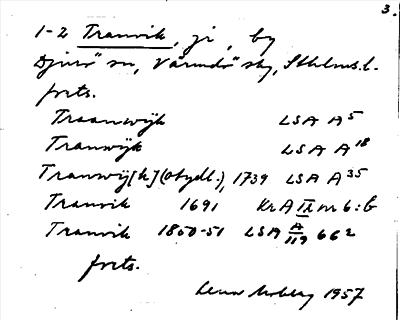 3.
1-2 Tranvik, gi, by
Djurö sn, Värmdö skg, Sthlms l.
forts.
Traanwijk LSA A⁵
Tranwijk LSA A¹⁸
Tranwij[k] (otydl.), 1739 LSA A³⁵
Tranvik 1691 KrA IX nr 6:b
Tranvik 1850-51 LSA A/119 66²
forts.
1957